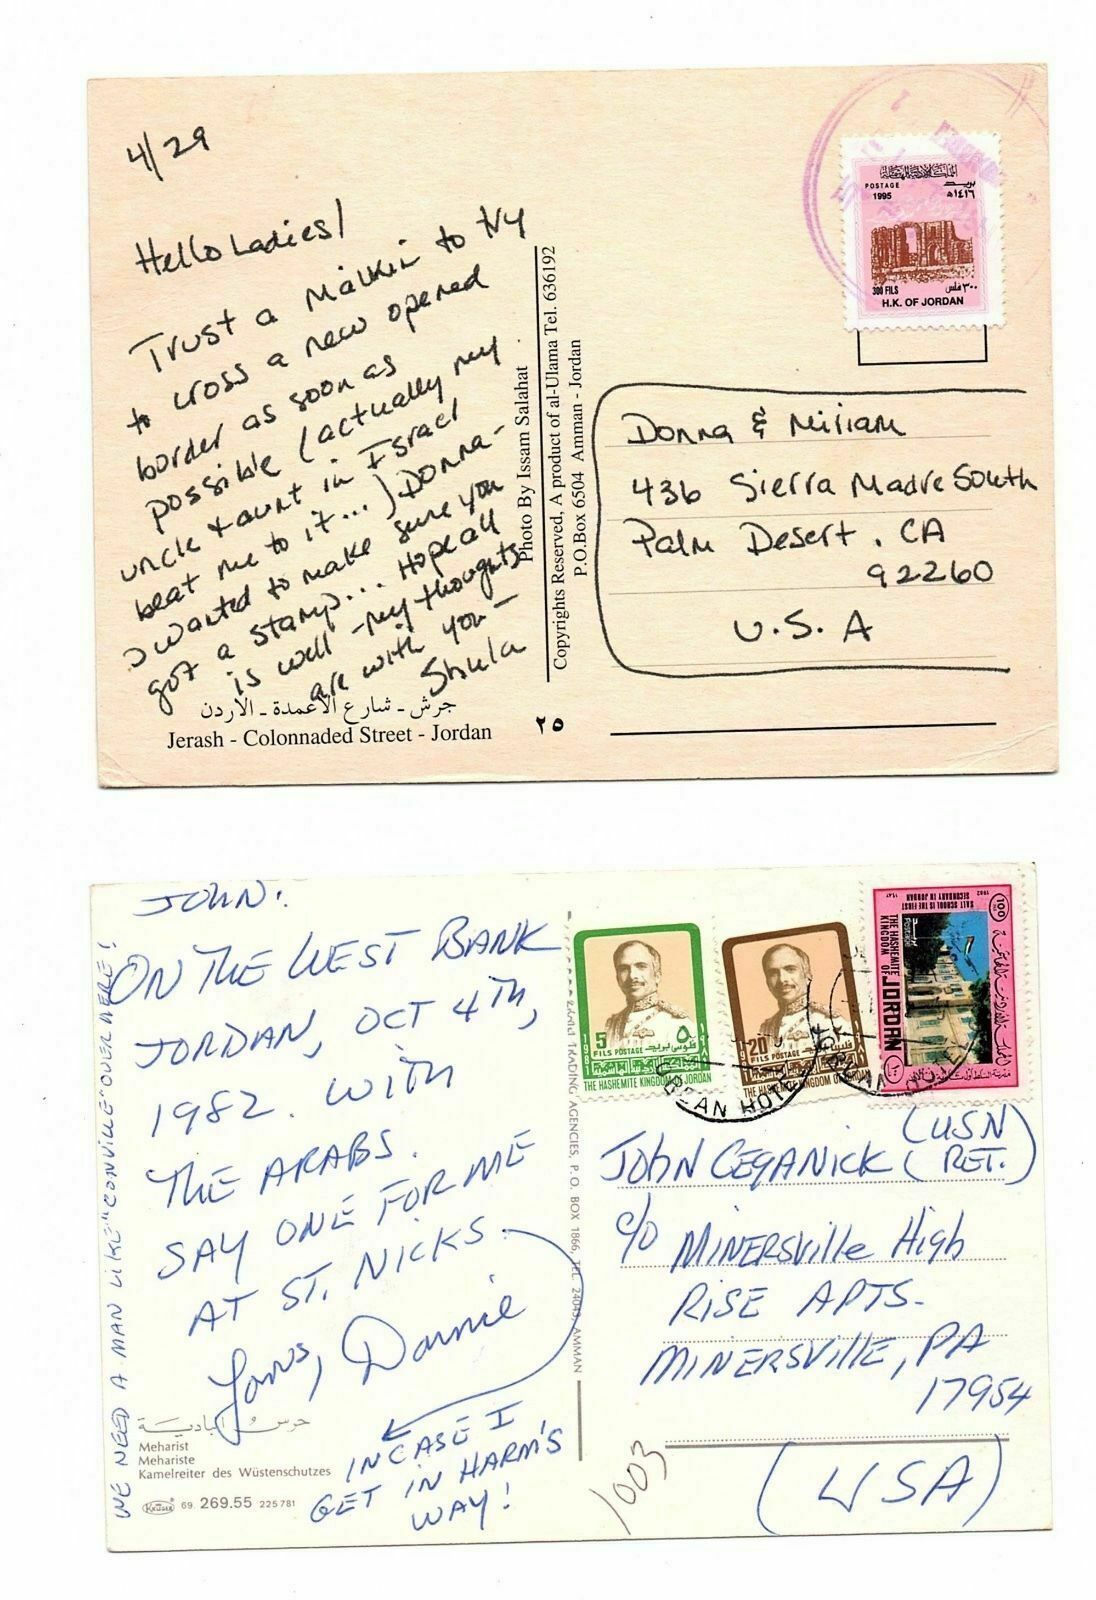 4/29
Hello Ladies!
Trust a Malkin to try
to cross a new opened
border as soon as
possible (actually my
uncle & aunt in Israel
beat me to it...) Donna-
I wanted to make sure you
got a stamp... Hope all
is well - my thoughts
are with you -
Shula
جرش - شارع الأعمدة - الأردن
Jerash - Colonnaded Street - Jordan
٢٥
Photo By Issam Salahat
Copyrights Reserved, A product of al-Ulama Tel. 636192
P.O.Box 6504 Amman - Jordan
المملكة الأردنية الهاشمية
POSTAGE
1995
بريد
١٤١٦هـ
300 FILS
٣٠٠ فلس
H.K. OF JORDAN
Donna & Miriam
436 Sierra Madre South
Palm Desert, CA
92260
U.S.A
JOHN:
ON THE WEST BANK
JORDAN, OCT 4TH,
1982. WITH
THE ARABS.
SAY ONE FOR ME
AT ST. NICKS.
Yours, Donnie
IN CASE I
GET IN HARM'S
WAY!
WE NEED A MAN LIKE "CONVILLE" OVER HERE!
Meharist
Mehariste
Kamelreiter des Wüstenschutzes
KRÜGER 69. 269.55 225781
TRADING AGENCIES, P.O. BOX 1866, TEL. 24043, AMMAN
1981
5
٥
FILS POSTAGE فلوس بريد
١٩٨١
المملكة الأردنية الهاشمية
THE HASHEMITE KINGDOM OF JORDAN
1981
20
FILS POSTAGE
THE HASHEMITE KINGDOM OF JORDAN
HOTEL
100
1982
١٩٨٢
SALT SCHOOL IS THE FIRST
SECONDARY IN JORDAN
THE HASHEMITE
KINGDOM OF
JORDAN
Postage
بريد
١٠٠
John Ceganick (USN
RET.)
c/o Minersville High
Rise Apts.
Minersville, PA
17954
(USA)
1003